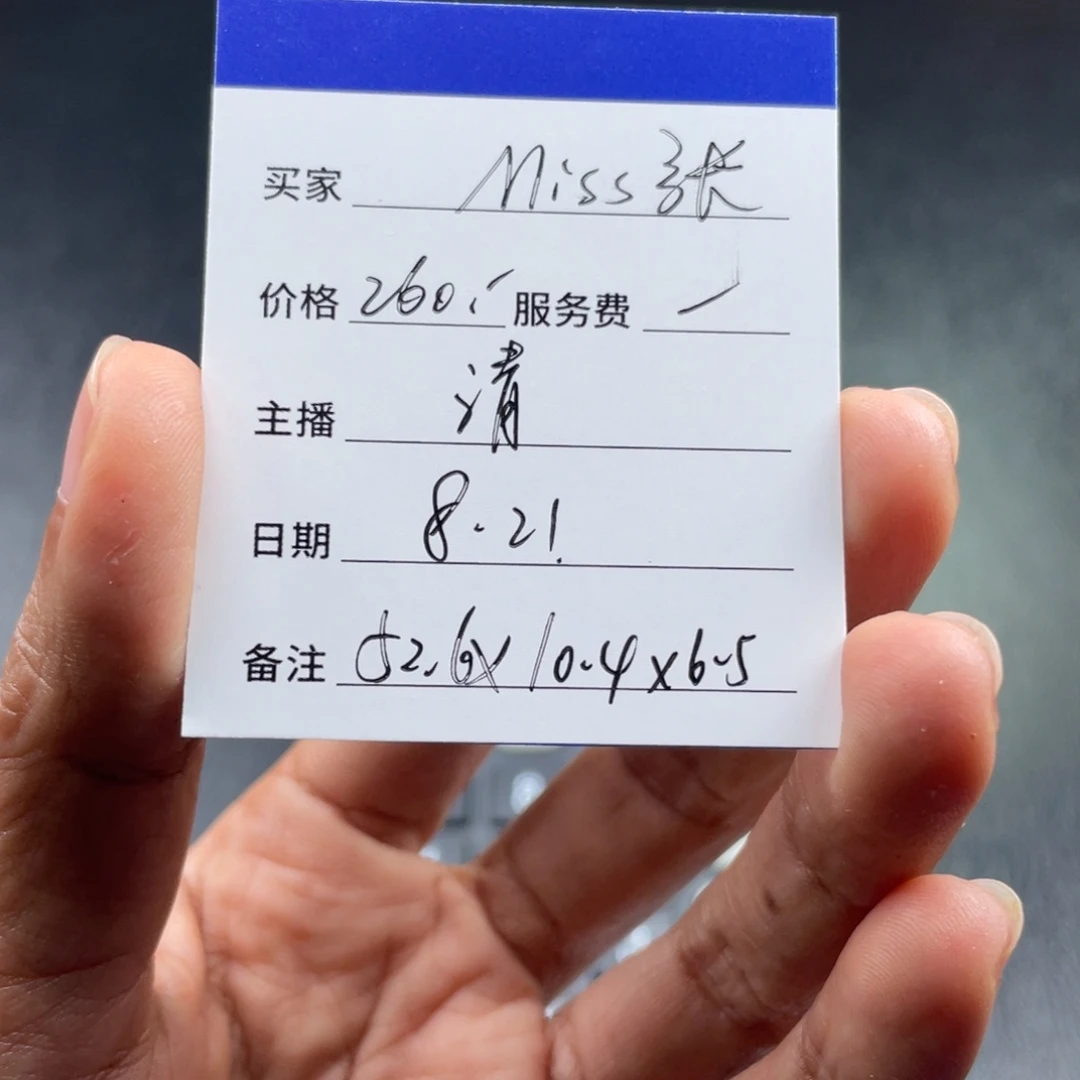 买家 Miss 张
价格 260.- 服务费 -
主播 清
日期 8.21.
备注 52.6x10.4x6.5